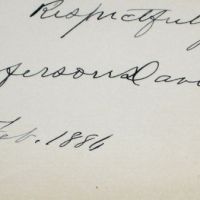 Respectfully
fferson Davi
Feb. 1886